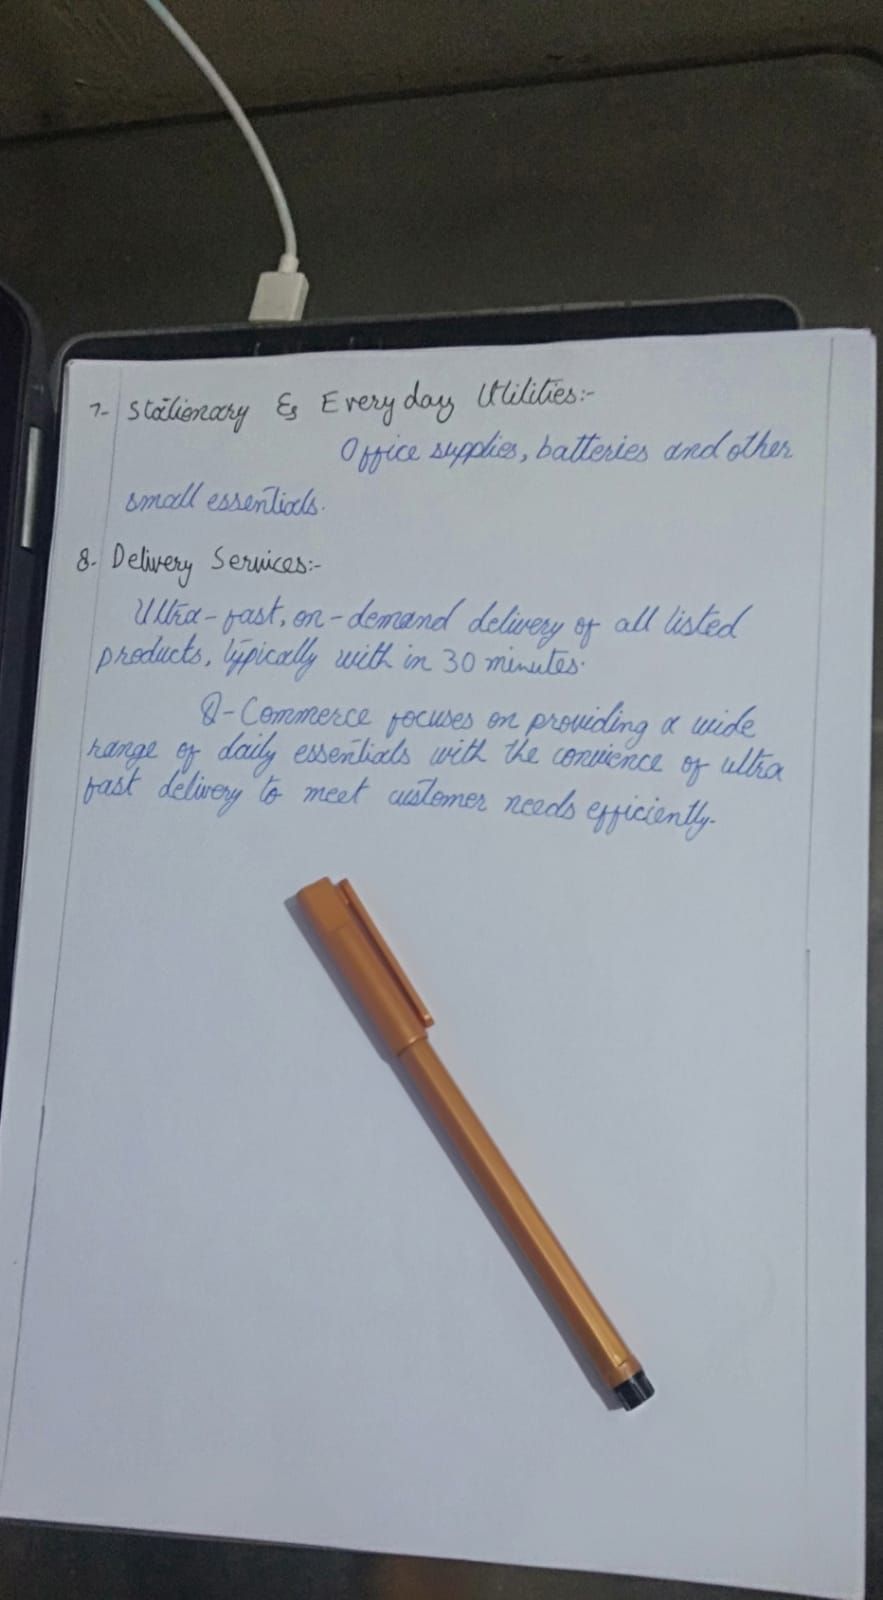 7- Stationary & Everyday Utilities:-
Office supplies, batteries and other
small essentials.
8- Delivery Services:-
Ultra-fast, on-demand delivery of all listed
products, typically with in 30 minutes.
Q-Commerce focuses on providing a wide
range of daily essentials with the convience of ultra
fast delivery to meet customer needs efficiently.